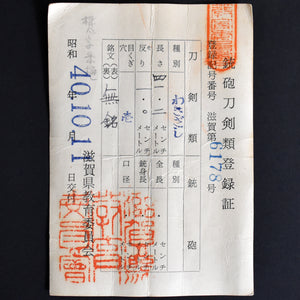 銃砲刀剣類登録証
登録記号番号 滋賀第6178号
刀剣類
銃砲
種別
種別
長さ 四一.二 センチメートル
全長 センチメートル
反り 一.〇 センチメートル
銃身長 センチメートル
目くぎ穴 壱
口径
銘文(表)(裏) 無銘
昭和40年10月11日交付
滋賀県教育委員会